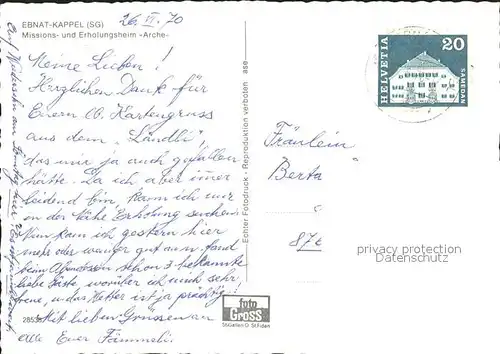 EBNAT-KAPPEL (SG)
Missions- und Erholungsheim «Arche»
26. VI. 70
Meine Lieben!
Herzlichen Dank für
Euern lb. Kartengruss
aus dem "Ländli",
das mir ja auch gefallen
hätte. Da ich aber immer
leidend bin, kann ich nur
in der Nähe Erholung suchen.
Nun kann ich gestern hier
mehr oder weniger gut
beim Abendessen schon 3 bekannte
liebe Gäste worüber ich mich sehr
freue, u. das Wetter ist ja prächtig!
Mit lieben Grüssen an
alle Euer
Echter Fotodruck - Reproduktion verboten
foto
GROSS
St.Gallen O St.Fiden
HELVETIA
20
SAMEDAN
Fräulein
Berta
privacy protection
Datenschutz